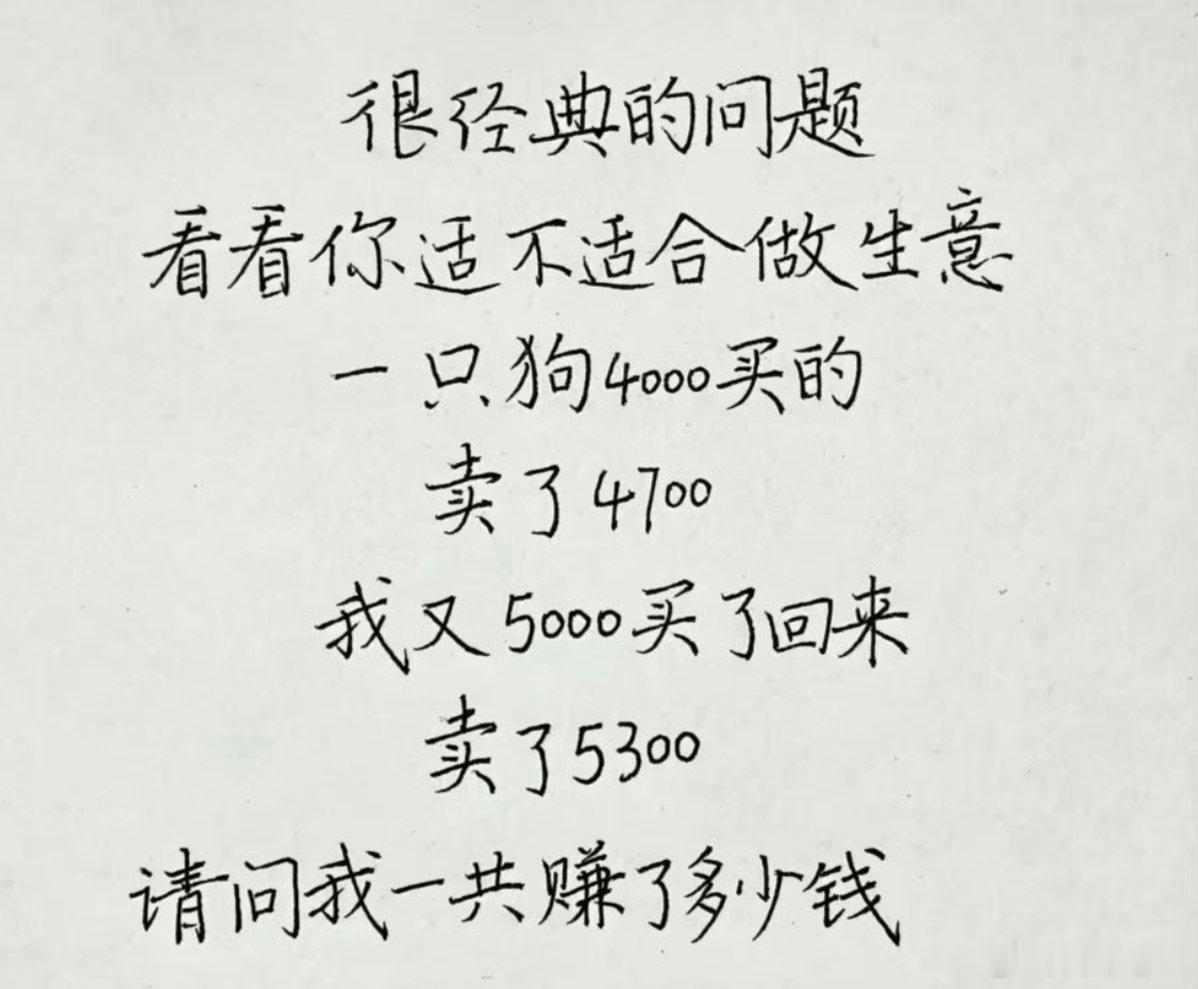 很经典的问题
看看你适不适合做生意
一只狗4000买的
卖了4700
我又5000买了回来
卖了5300
请问我一共赚了多少钱